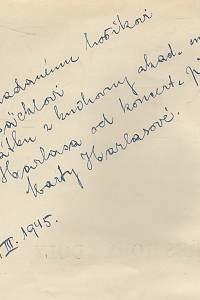 nadanému hošíkovi
z knihovny akad. m
Harlasa od koncert. pi
Marty Harlasové.
III. 1945.